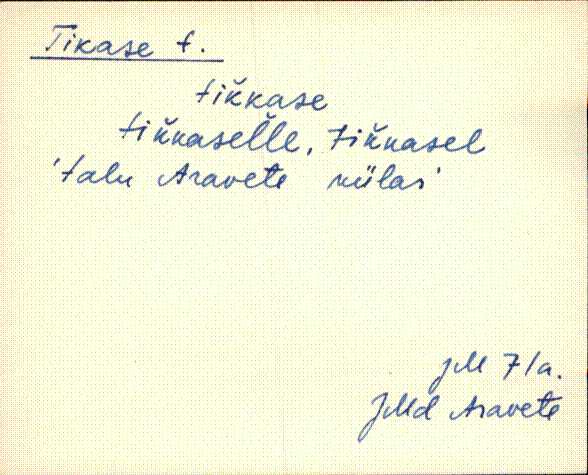 Tikase t.
tik̆kase
tik̆kasel̆le, tik̆kasel
'talu Aravete külas'
JM 71a.
JMd Aravete